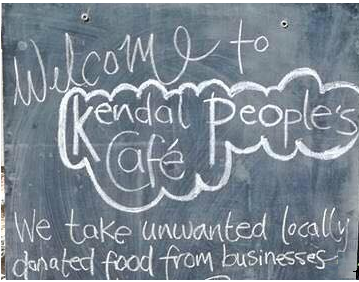 Welcome to
Kendal People's
Café
We take unwanted locally
donated food from businesses